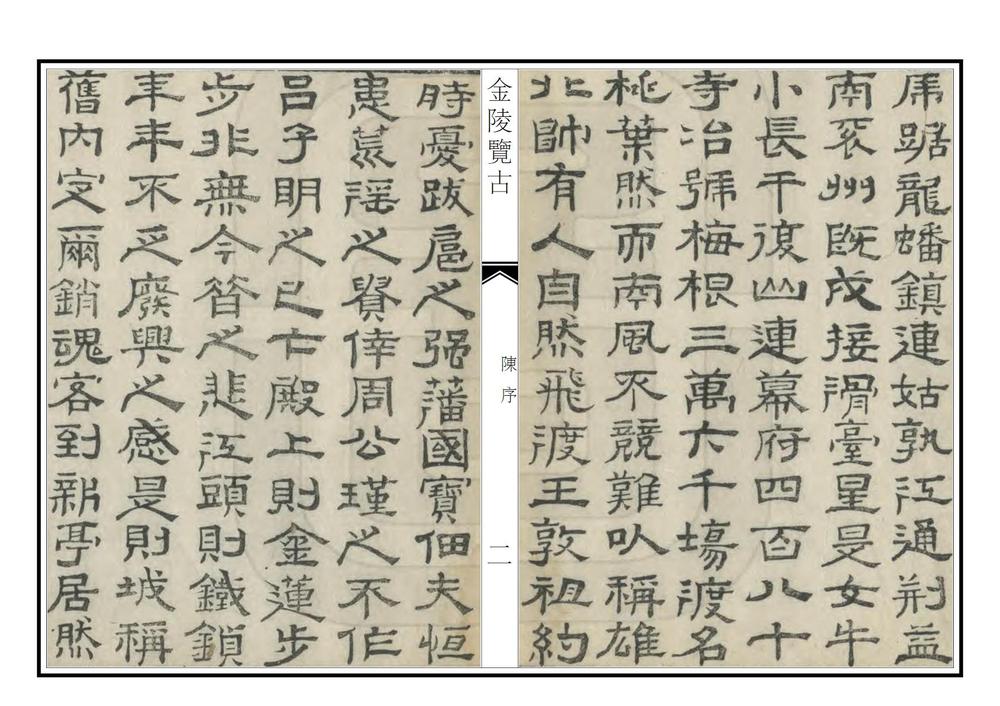 虎踞龍蟠鎮連姑孰江通荊益
南兖州既戍接滑臺星是女牛
小長干復山連幕府四百八十
寺冶號梅根三萬六千場渡名
桃葉然而南風不競難以稱雄
北帥有人自然飛渡王敦祖約
金陵覽古
陳序
二
時憂跋扈之强藩國寶佃夫恒
患荒淫之嬖倖周公瑾之不作
呂子明之已亡殿上則金蓮步
步非無今昔之悲江頭則鐵鎖
年年不乏廢興之感是則城稱
舊內定爾銷魂客到新亭居然